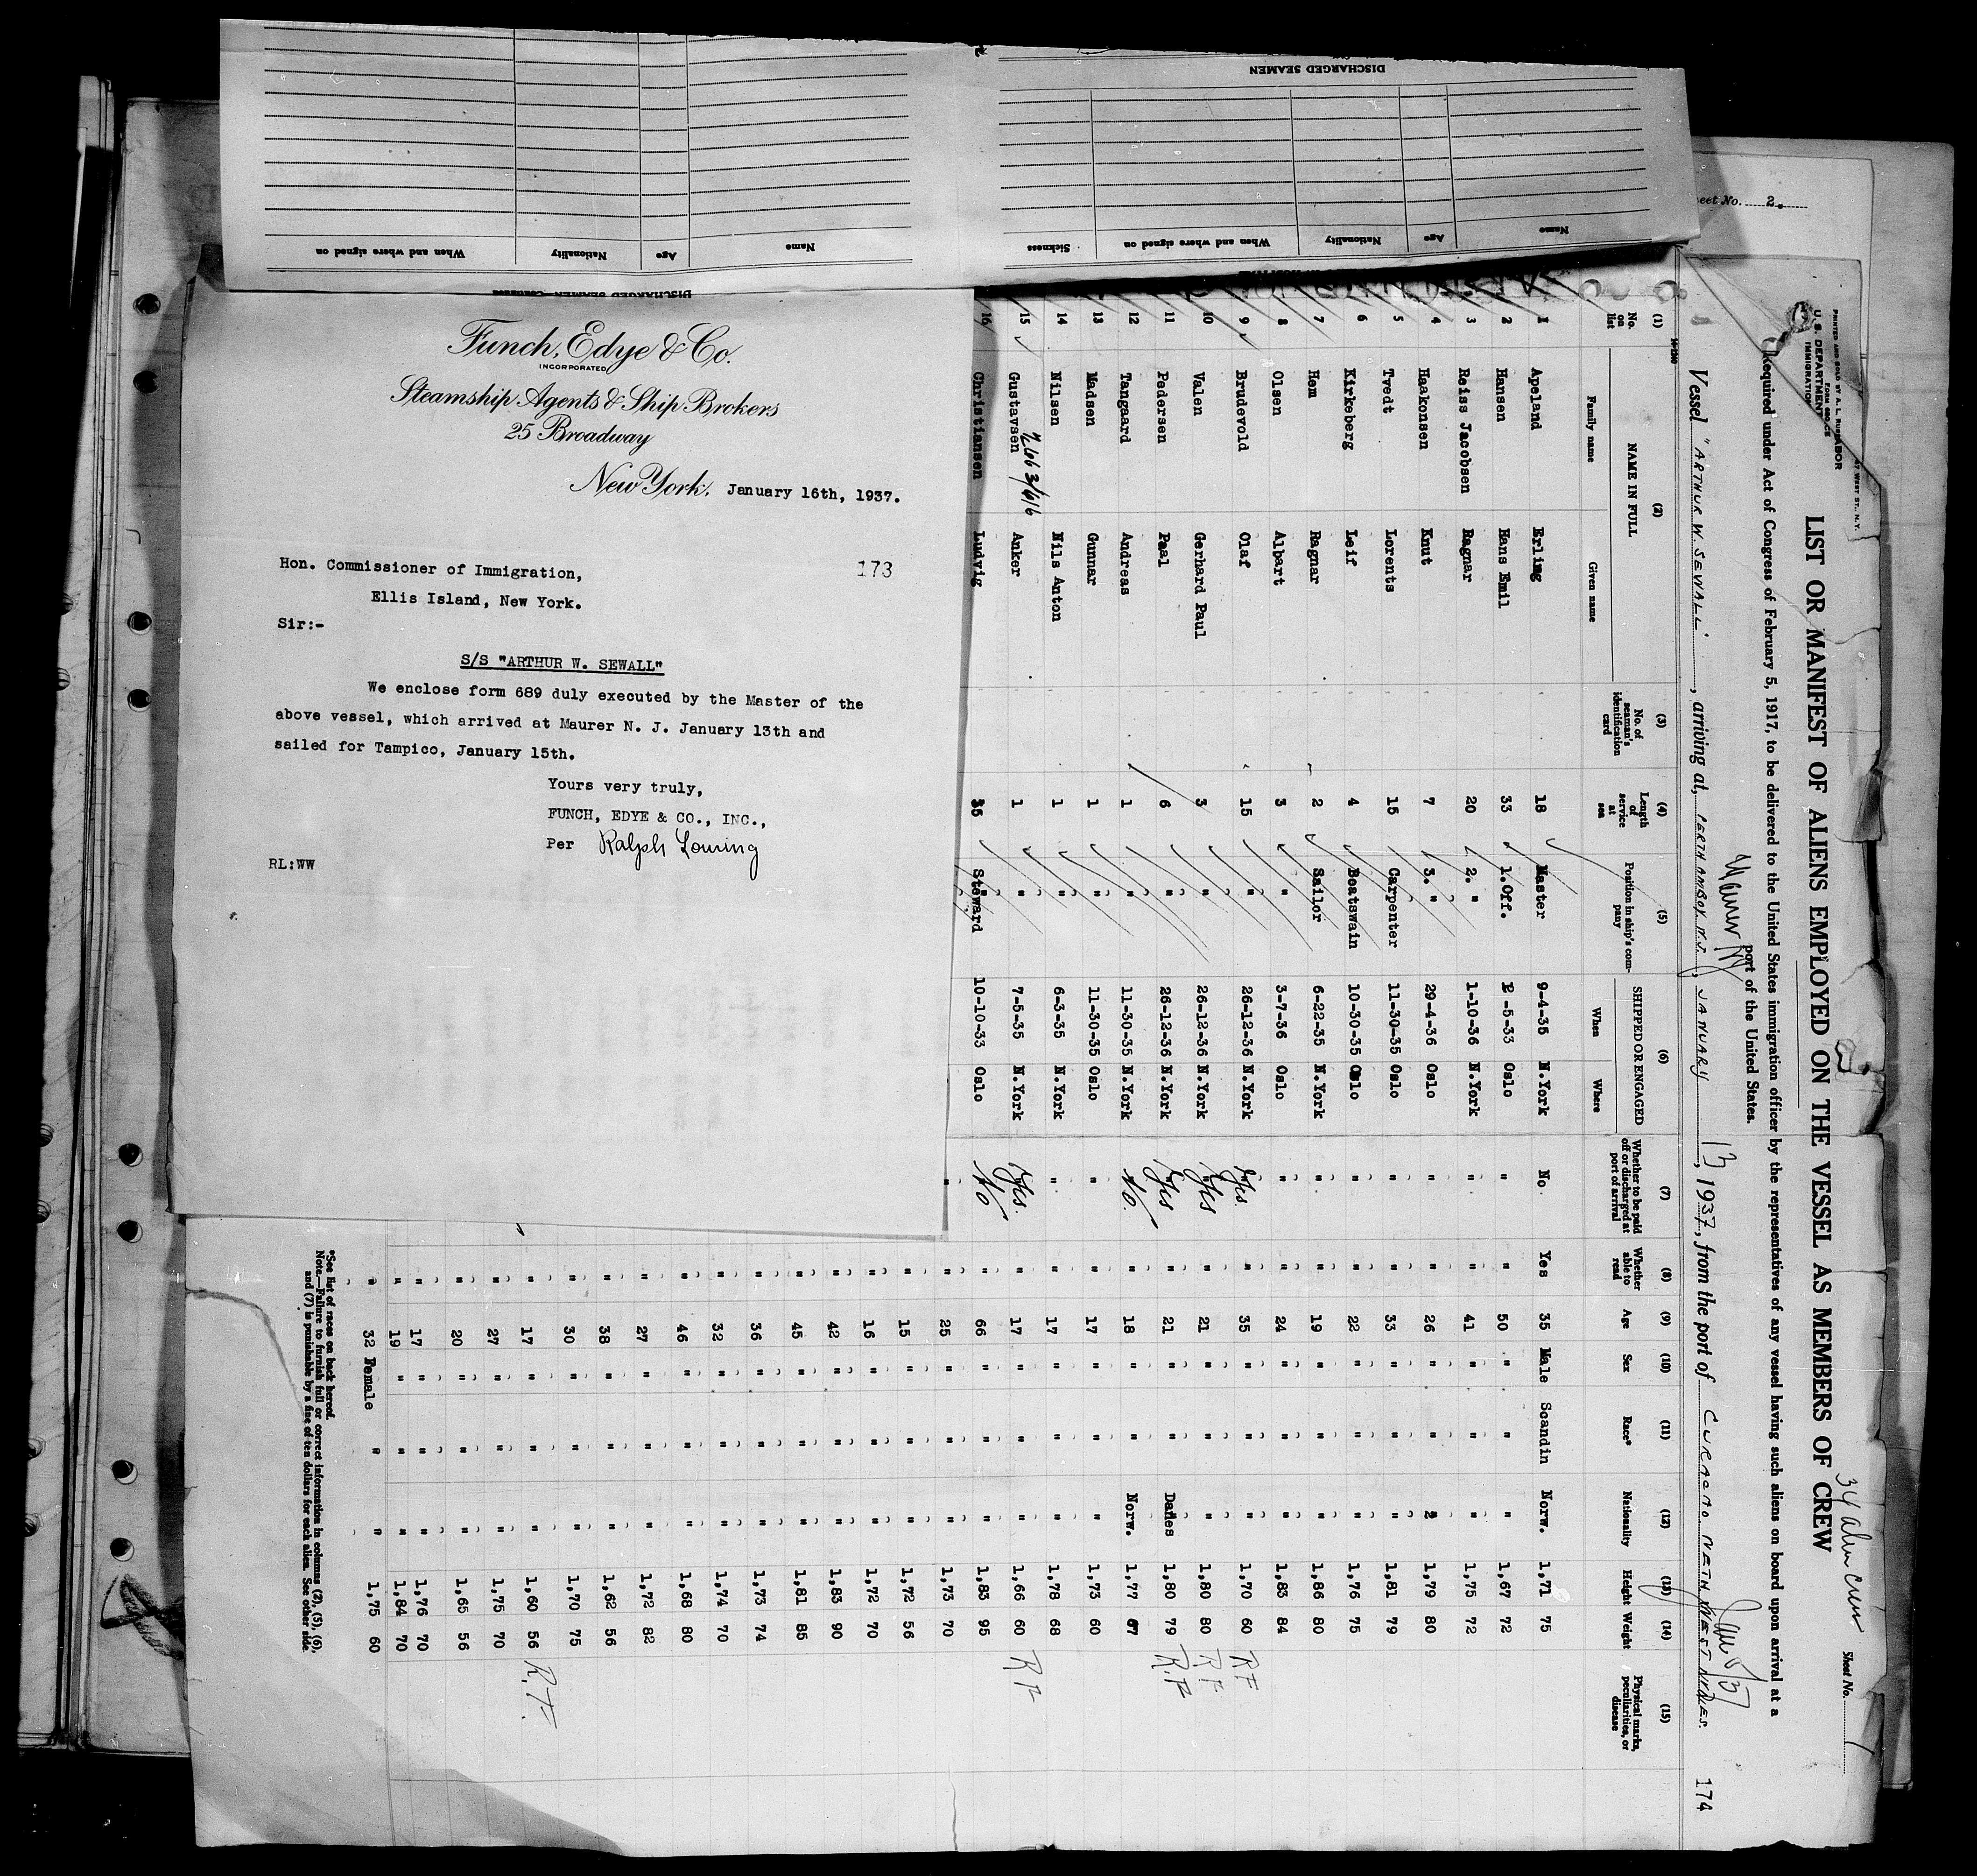 DISCHARGED SEAMEN
Name
Age
Nationality
When and where signed on
Sickness
Name
Age
Nationality
When and where signed on
DISCHARGED SEAMEN
Funch, Edye & Co.
INCORPORATED
Steamship Agents & Ship Brokers
25 Broadway
New York, January 16th, 1937.
Hon. Commissioner of Immigration, 173
Ellis Island, New York.
Sir:-
S/S "ARTHUR W. SEWALL"
We enclose form 689 duly executed by the Master of the
above vessel, which arrived at Maurer N. J. January 13th and
sailed for Tampico, January 15th.
Yours very truly,
FUNCH, EDYE & CO., INC.,
Per Ralph Louring
RL:WW
eet No. 2.
U. S. DEPARTMENT
IMMIGRATION
34 alien crew
Sheet No. 1
LIST OR MANIFEST OF ALIENS EMPLOYED ON THE VESSEL AS MEMBERS OF CREW
Required under Act of Congress of February 5, 1917, to be delivered to the United States immigration officer by the representatives of any vessel having such aliens on board upon arrival at a
port of the United States.
Vessel "ARTHUR W. SEWALL", arriving at PERTH AMBOY N.J., JANUARY 13, 1937, from the port of CURACAO NETH WEST INDIES. 174
(1) (2) (3) (4) (5) (6) (7) (8) (9) (10) (11) (12) (13) (14) (15)
No. on list
NAME IN FULL
Family name Given name
No. of seaman's identification card
Length of service at sea
Position in ship's company
SHIPPED OR ENGAGED
When Where
Whether to be paid off or discharged at port of arrival
Whether able to read
Age
Sex
Race*
Nationality
Height
Weight
Physical marks, peculiarities, or disease
1 Apeland Erling 18 Master 9-4-35 N.York No Yes 35 Male Scandin Norw. 1,71 75
2 Hansen Hans Emil 33 1.Off. -5-33 Oslo " " 50 " " " 1,67 72
3 Reiss Jacobsen Ragnar 20 2. " 1-10-36 N.York " " 41 " " " 1,75 72
4 Haakonsen Knut 7 3. " 29-4-36 Oslo " " 26 " " " 1,79 80
5 Tvedt Lorents 15 Carpenter 11-30-35 Oslo " " 33 " " " 1,81 79
6 Kirkeberg Leif 4 Boatswain 10-30-35 Oslo " " 22 " " " 1,76 75
7 Hem Ragnar 2 Sailor 6-22-35 N.York " " 19 " " " 1,86 80
8 Olsen Albart 3 " 3-7-36 Oslo " " 24 " " " 1,83 84
9 Brudevold Olaf 15 " 26-12-36 N.York Yes " 35 " " " 1,70 60 RF
10 Valen Gerhard Paul 3 " 26-12-36 N.York Yes " 21 " " " 1,80 80 RF
11 Pedersen Paal 6 " 26-12-36 N.York Yes " 21 " " Danes 1,80 79 R.F
12 Tangaard Andreas 1 " 11-30-35 N.York No " 18 " " Norw. 1,77 67
13 Madsen Gunnar 1 " 11-30-35 Oslo " " 17 " " " 1,73 60
14 Nilsen Nils Anton 1 " 6-3-35 N.York " " 17 " " " 1,78 68
15 Gustavsen Anker 1 " 7-5-35 N.York Yes " 17 " " " 1,66 60 RF
16 Christiansen Ludvig 35 Steward 10-10-33 Oslo No " 66 " " " 1,83 95
" " 25 " " " 1,73 70
" 15 " " " 1,72 56
" 16 " " " 1,72 70
" 42 " " " 1,83 90
" 45 " " " 1,81 85
" 36 " " " 1,73 74
" 32 " " " 1,74 70
" 46 " " " 1,68 80
" 27 " " " 1,72 82
" 38 " " " 1,62 56
" 30 " " " 1,70 75
" 17 " " " 1,60 56 R.F.
" 27 " " " 1,75 70
" 20 " " " 1,65 56
" 17 " " " 1,76 70
" 19 " " " 1,84 70
" 32 Female " " 1,75 60
*See list of races on back hereof.
Note.—Failure to furnish full or correct information in columns (2), (5), (6),
and (7) is punishable by a fine of ten dollars for each alien. See other side.